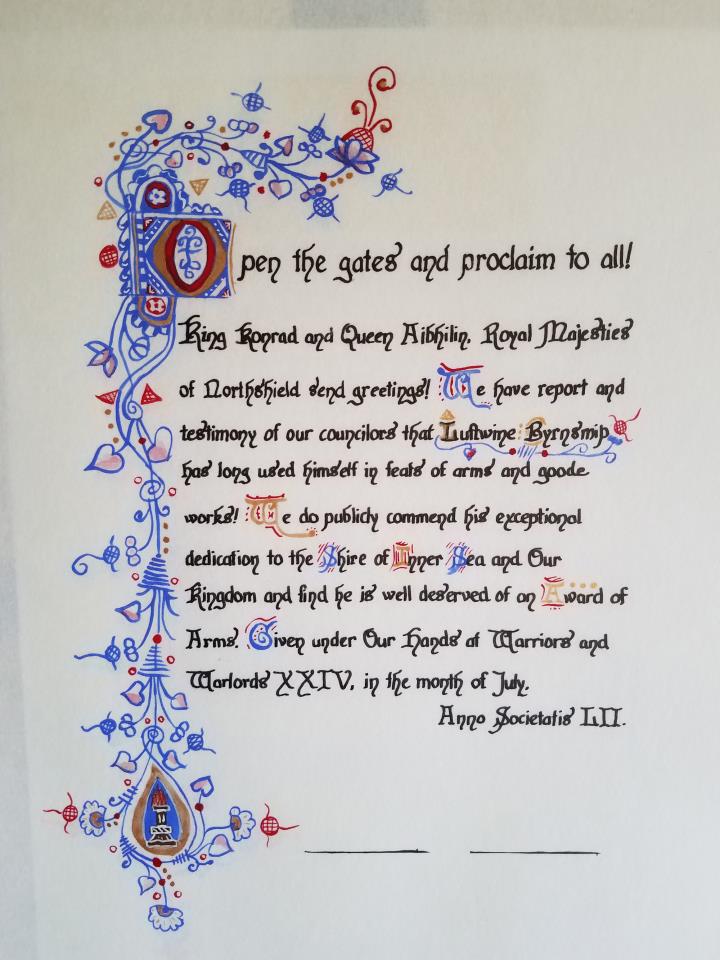 Open the gates and proclaim to all!
King Konrad and Queen Aibhilin, Royal Majesties
of Northshield send greetings! We have report and
testimony of our councilors that Luftwine Byrnsmiþ
has long used himself in feats of arms and goode
works! We do publicly commend his exceptional
dedication to the Shire of Inner Sea and Our
Kingdom and find he is well deserved of an Award of
Arms. Given under Our Hands at Warriors and
Warlords XXIV, in the month of July.
Anno Societatis LII.